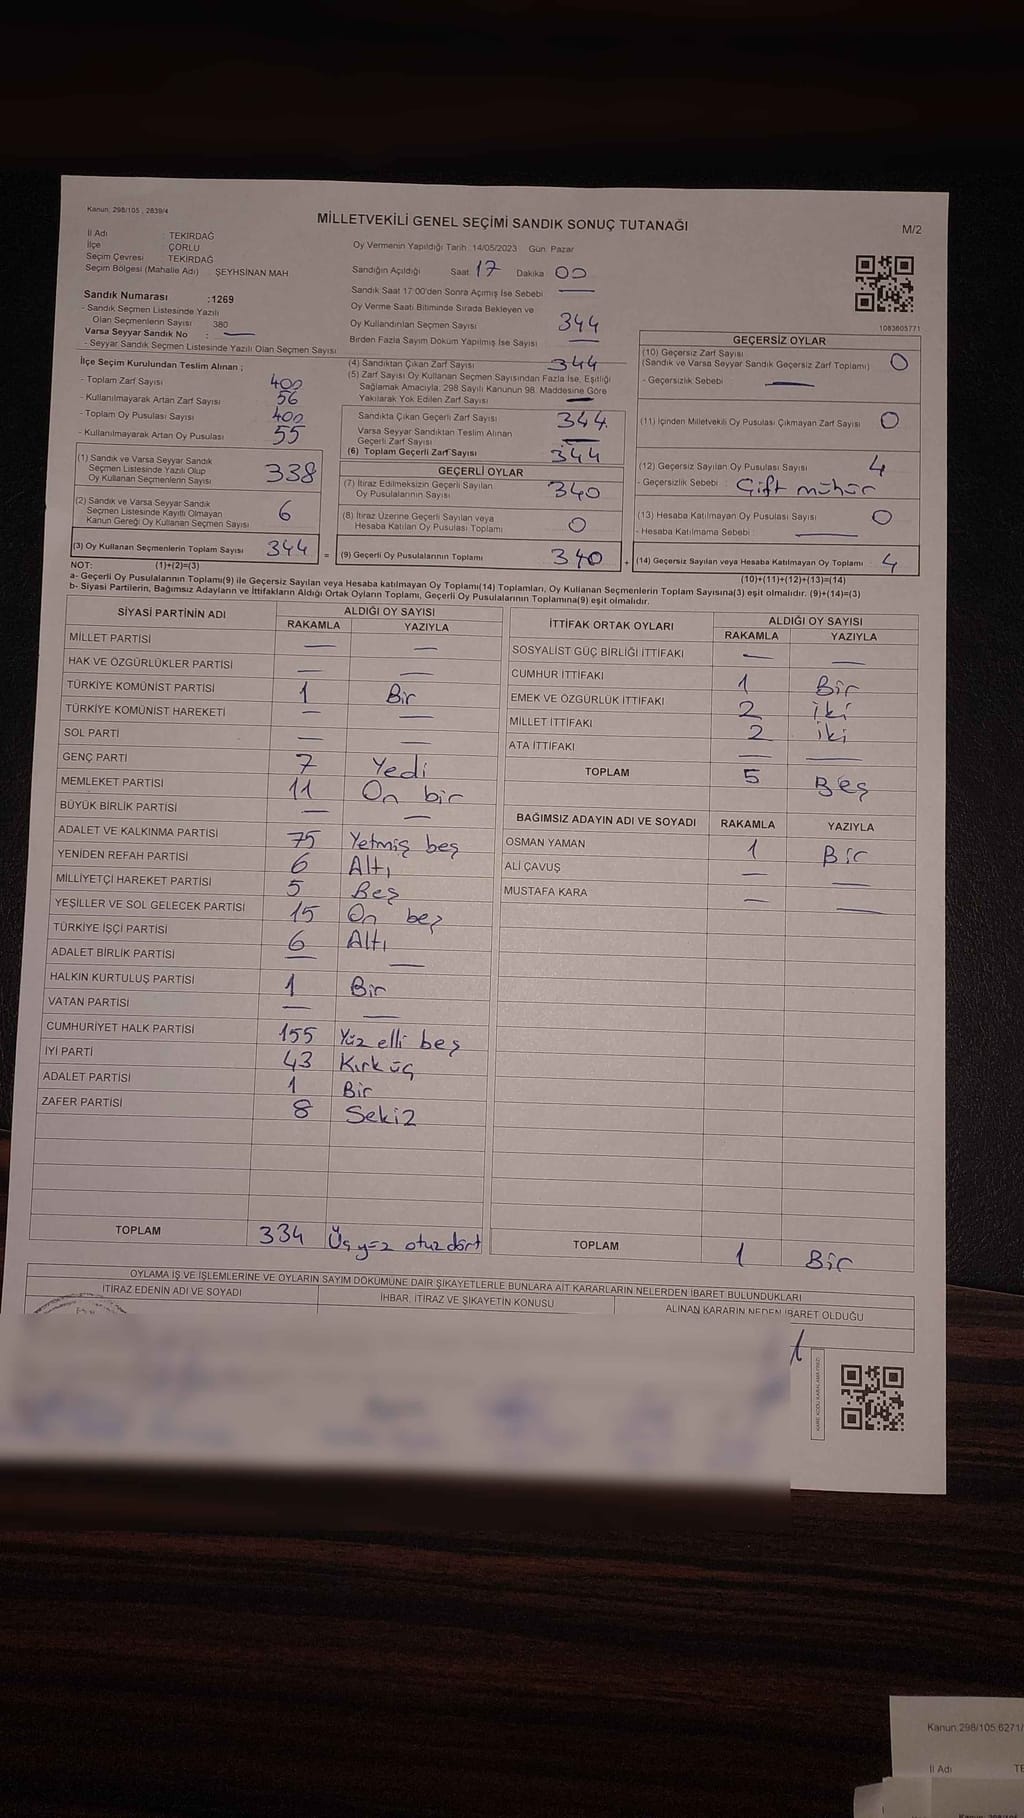 Kanun, 298/105, 2839/4
MİLLETVEKİLİ GENEL SEÇİMİ SANDIK SONUÇ TUTANAĞI
M/2
İl Adı : TEKİRDAĞ
İlçe : ÇORLU
Seçim Çevresi : TEKİRDAĞ
Seçim Bölgesi (Mahalle Adı) : ŞEYHSİNAN MAH
Sandık Numarası :1269
- Sandık Seçmen Listesinde Yazılı
Olan Seçmenlerin Sayısı 380
Varsa Seyyar Sandık No : —
- Seyyar Sandık Seçmen Listesinde Yazılı Olan Seçmen Sayısı
İlçe Seçim Kurulundan Teslim Alınan ;
- Toplam Zarf Sayısı 400
- Kullanılmayarak Artan Zarf Sayısı 56
- Toplam Oy Pusulası Sayısı 400
- Kullanılmayarak Artan Oy Pusulası 55
(1) Sandık ve Varsa Seyyar Sandık
Seçmen Listesinde Yazılı Olup
Oy Kullanan Seçmenlerin Sayısı 338
(2) Sandık ve Varsa Seyyar Sandık
Seçmen Listesinde Kayıtlı Olmayan
Kanun Gereği Oy Kullanan Seçmen Sayısı 6
(3) Oy Kullanan Seçmenlerin Toplam Sayısı 344
Oy Vermenin Yapıldığı Tarih : 14/05/2023 Gün: Pazar
Sandığın Açıldığı Saat 17 Dakika 00
Sandık Saat 17:00'den Sonra Açımış İse Sebebi —
Oy Verme Saati Bitiminde Sırada Bekleyen ve
Oy Kullandırılan Seçmen Sayısı 344
Birden Fazla Sayım Döküm Yapılmış İse Sayısı —
(4) Sandıktan Çıkan Zarf Sayısı 344
(5) Zarf Sayısı Oy Kullanan Seçmen Sayısından Fazla İse, Eşitliği
Sağlamak Amacıyla, 298 Sayılı Kanunun 98. Maddesine Göre
Yakılarak Yok Edilen Zarf Sayısı —
Sandıkta Çıkan Geçerli Zarf Sayısı 344
Varsa Seyyar Sandıktan Teslim Alınan
Geçerli Zarf Sayısı —
(6) Toplam Geçerli Zarf Sayısı 344
GEÇERLİ OYLAR
(7) İtiraz Edilmeksizin Geçerli Sayılan
Oy Pusulalarının Sayısı 340
(8) İtiraz Üzerine Geçerli Sayılan veya
Hesaba Katılan Oy Pusulası Toplamı 0
= (9) Geçerli Oy Pusulalarının Toplamı 340 +
1083605771
GEÇERSİZ OYLAR
(10) Geçersiz Zarf Sayısı
(Sandık ve Varsa Seyyar Sandık Geçersiz Zarf Toplamı) 0
- Geçersizlik Sebebi : —
(11) İçinden Milletvekili Oy Pusulası Çıkmayan Zarf Sayısı 0
(12) Geçersiz Sayılan Oy Pusulası Sayısı 4
- Geçersizlik Sebebi : Çift mühür
(13) Hesaba Katılmayan Oy Pusulası Sayısı 0
- Hesaba Katılmama Sebebi : —
(14) Geçersiz Sayılan veya Hesaba Katılmayan Oy Toplamı 4
NOT: (1)+(2)=(3)
(10)+(11)+(12)+(13)=(14)
a- Geçerli Oy Pusulalarının Toplamı(9) ile Geçersiz Sayılan veya Hesaba katılmayan Oy Toplamı(14) Toplamları, Oy Kullanan Seçmenlerin Toplam Sayısına(3) eşit olmalıdır. (9)+(14)=(3)
b- Siyasi Partilerin, Bağımsız Adayların ve İttifakların Aldığı Ortak Oyların Toplamı, Geçerli Oy Pusulalarının Toplamına(9) eşit olmalıdır.
SİYASİ PARTİNİN ADI ALDIĞI OY SAYISI
RAKAMLA YAZIYLA
MİLLET PARTİSİ — —
HAK VE ÖZGÜRLÜKLER PARTİSİ — —
TÜRKİYE KOMÜNİST PARTİSİ 1 Bir
TÜRKİYE KOMÜNİST HAREKETİ — —
SOL PARTİ — —
GENÇ PARTİ 7 Yedi
MEMLEKET PARTİSİ 11 On bir
BÜYÜK BİRLİK PARTİSİ — —
ADALET VE KALKINMA PARTİSİ 75 Yetmiş beş
YENİDEN REFAH PARTİSİ 6 Altı
MİLLİYETÇİ HAREKET PARTİSİ 5 Beş
YEŞİLLER VE SOL GELECEK PARTİSİ 15 On beş
TÜRKİYE İŞÇİ PARTİSİ 6 Altı
ADALET BİRLİK PARTİSİ — —
HALKIN KURTULUŞ PARTİSİ 1 Bir
VATAN PARTİSİ — —
CUMHURİYET HALK PARTİSİ 155 Yüz elli beş
İYİ PARTİ 43 Kırk üç
ADALET PARTİSİ 1 Bir
ZAFER PARTİSİ 8 Sekiz
TOPLAM 334 Üç yüz otuz dört
İTTİFAK ORTAK OYLARI ALDIĞI OY SAYISI
RAKAMLA YAZIYLA
SOSYALİST GÜÇ BİRLİĞİ İTTİFAKI — —
CUMHUR İTTİFAKI 1 Bir
EMEK VE ÖZGÜRLÜK İTTİFAKI 2 iki
MİLLET İTTİFAKI 2 iki
ATA İTTİFAKI — —
TOPLAM 5 Beş
BAĞIMSIZ ADAYIN ADI VE SOYADI RAKAMLA YAZIYLA
OSMAN YAMAN 1 Bir
ALİ ÇAVUŞ — —
MUSTAFA KARA — —
TOPLAM 1 Bir
OYLAMA İŞ VE İŞLEMLERİNE VE OYLARIN SAYIM DÖKÜMÜNE DAİR ŞİKAYETLERLE BUNLARA AİT KARARLARIN NELERDEN İBARET BULUNDUKLARI
İTİRAZ EDENİN ADI VE SOYADI İHBAR, İTİRAZ VE ŞİKAYETİN KONUSU ALINAN KARARIN NEDEN İBARET OLDUĞU
KARE KODU KARALAMAYINIZ!
Kanun,298/105,6271/
İl Adı TE